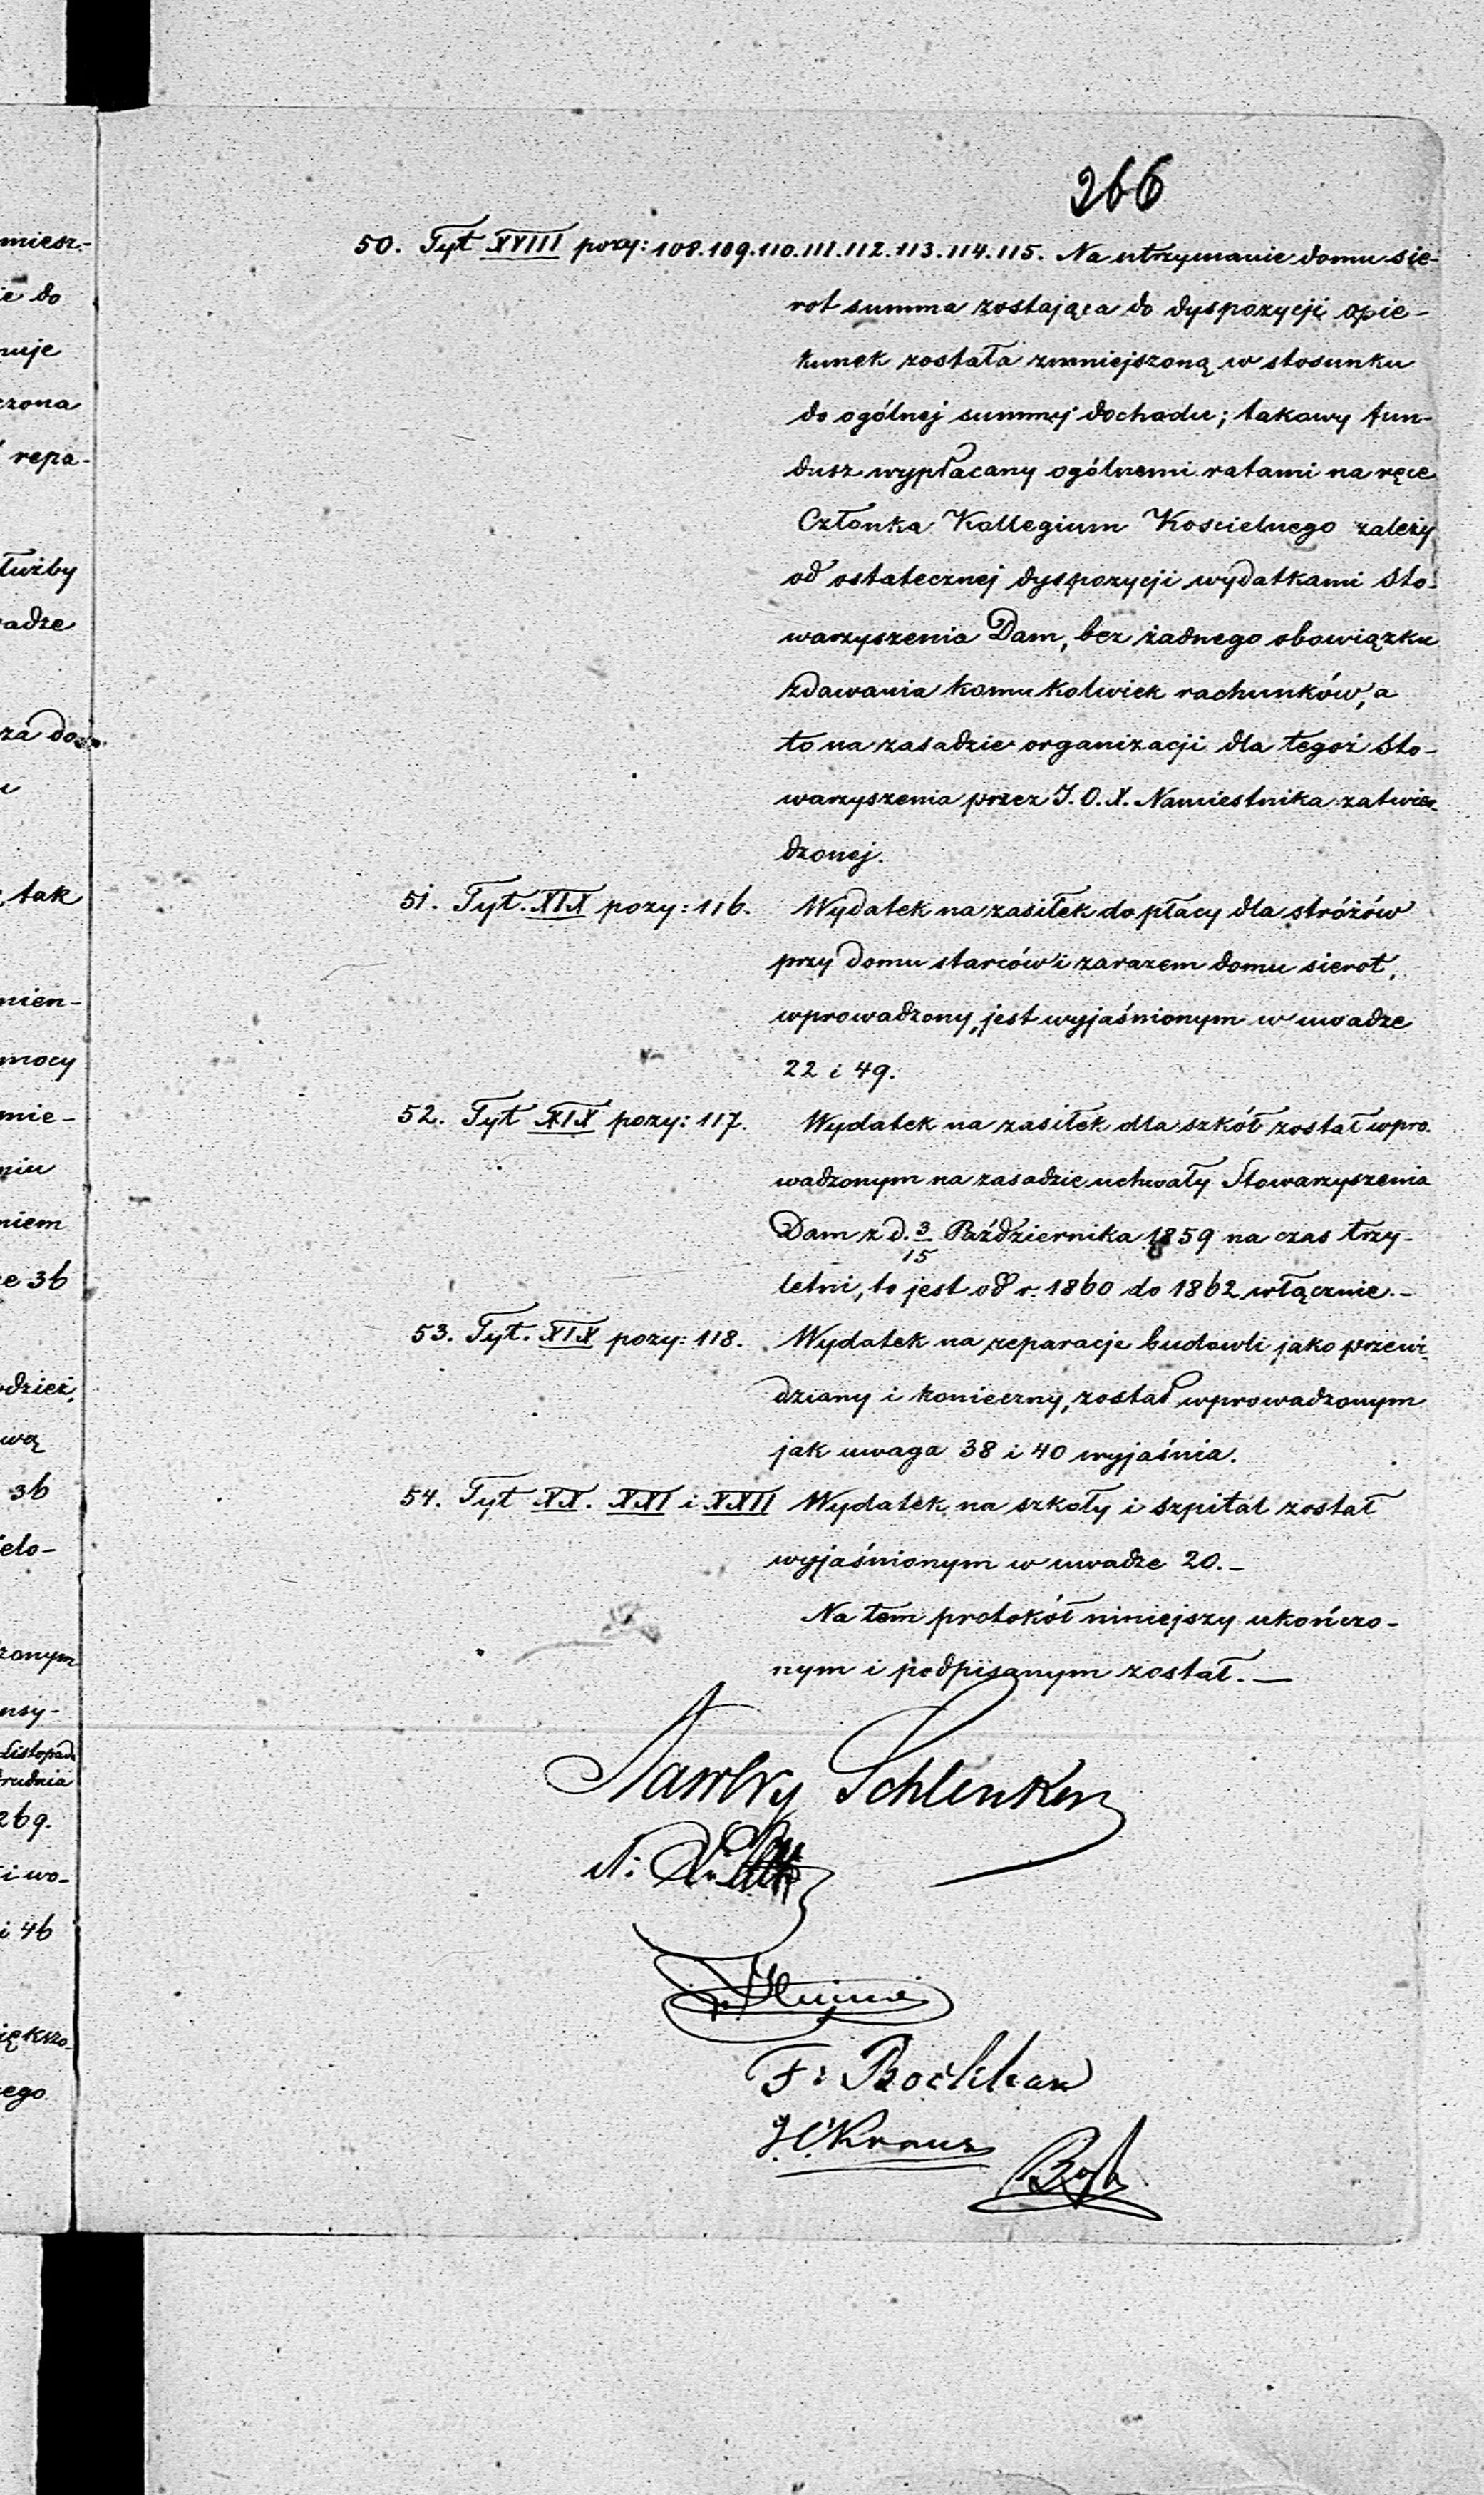 266
50. Tyt XVIII pozy: 108.109.110.111.112.113.114.115. Na utrzymanie domu sie-
rot summa zostająca do dyspozycji opie-
kunek została zmniejszoną w stosunku
do ogólnej summy dochodu; takowy fun-
dusz wypłacany ogólnemi ratami na ręce
Członka Kollegium Koscielnego zależy
od ostatecznej dyspozycji wydatkami Sto-
warzyszenia Dam, bez żadnego obowiązku
zdawania komukolwiek rachunków, a
to na zasadzie organizacji dla tegoż Sto-
warzyszenia przez J. O. X. Namiestnika zatwier-
dzonej.
51. Tyt. XIX pozy: 116. Wydatek na zasiłek do płacy dla stróżów
przy domu starców i zarazem domu sierot,
wprowadzony, jest wyjaśnionym w uwadze
22 i 49.
52. Tyt XIX pozy: 117. Wydatek na zasiłek dla szkół został wpro-
wadzonym na zasadzie uchwały Stowarzyszenia
Dam z d. 3/15 Października 1859 na czas trzy-
letni, to jest od r. 1860 do 1862 włącznie.-
53. Tyt. XIX pozy: 118. Wydatek na reparacje budowli jako przewi-
dziany i konieczny, został wprowadzonym
jak uwaga 38 i 40 wyjaśnia.
54. Tyt XX. XXI i XXII Wydatek na szkoły i szpital został
wyjaśnionym w uwadze 20.-
Na tem protokół niniejszy ukończo-
nym i podpisanym został.—
Schlenker
F:
Kraus
miesz-
ie do
nuje
czona
repa-
łużby
adze
za do
tak
mien-
mocy
mie-
niu
niem
e 36
odzież,
wą
36
elo-
zonym
nsy-
Listopada
Grudnia
269.
i wo-
i 46
iększo-
ego